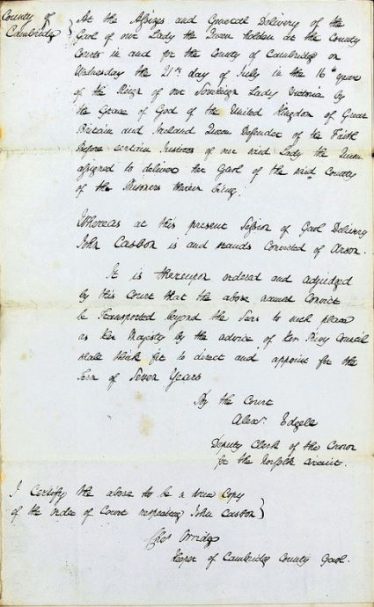 County of
Cambridge } At the Assizes and General Delivery of the
Gaol of our Lady the Queen holden at the County
Courts in and for the County of Cambridge on
Wednesday the 21st day of July in the 16th year
of the Reign of our Sovereign Lady Victoria by
the Grace of God of the United Kingdom of Great
Britain and Ireland Queen Defender of the Faith
Before certain Justices of our said Lady the Queen
assigned to deliver her Gaol of the said County
of the Prisoners therein being.
Whereas at this present Session of Gaol Delivery
John Casbon is and stands Convicted of Arson.
It is thereupon ordered and adjudged
by this Court that the above named Convict
be Transported beyond the Seas to such place
as Her Majesty by the advice of Her Privy Council
shall think fit to direct and appoint for the
term of Seven Years
By the Court
Alexr. Edgell
Deputy Clerk of the Crown
for the Norfolk Circuit.
I Certify the above to be a true Copy
of the order of Court respecting John Casbon }
Orridge
Keeper of Cambridge County Gaol.